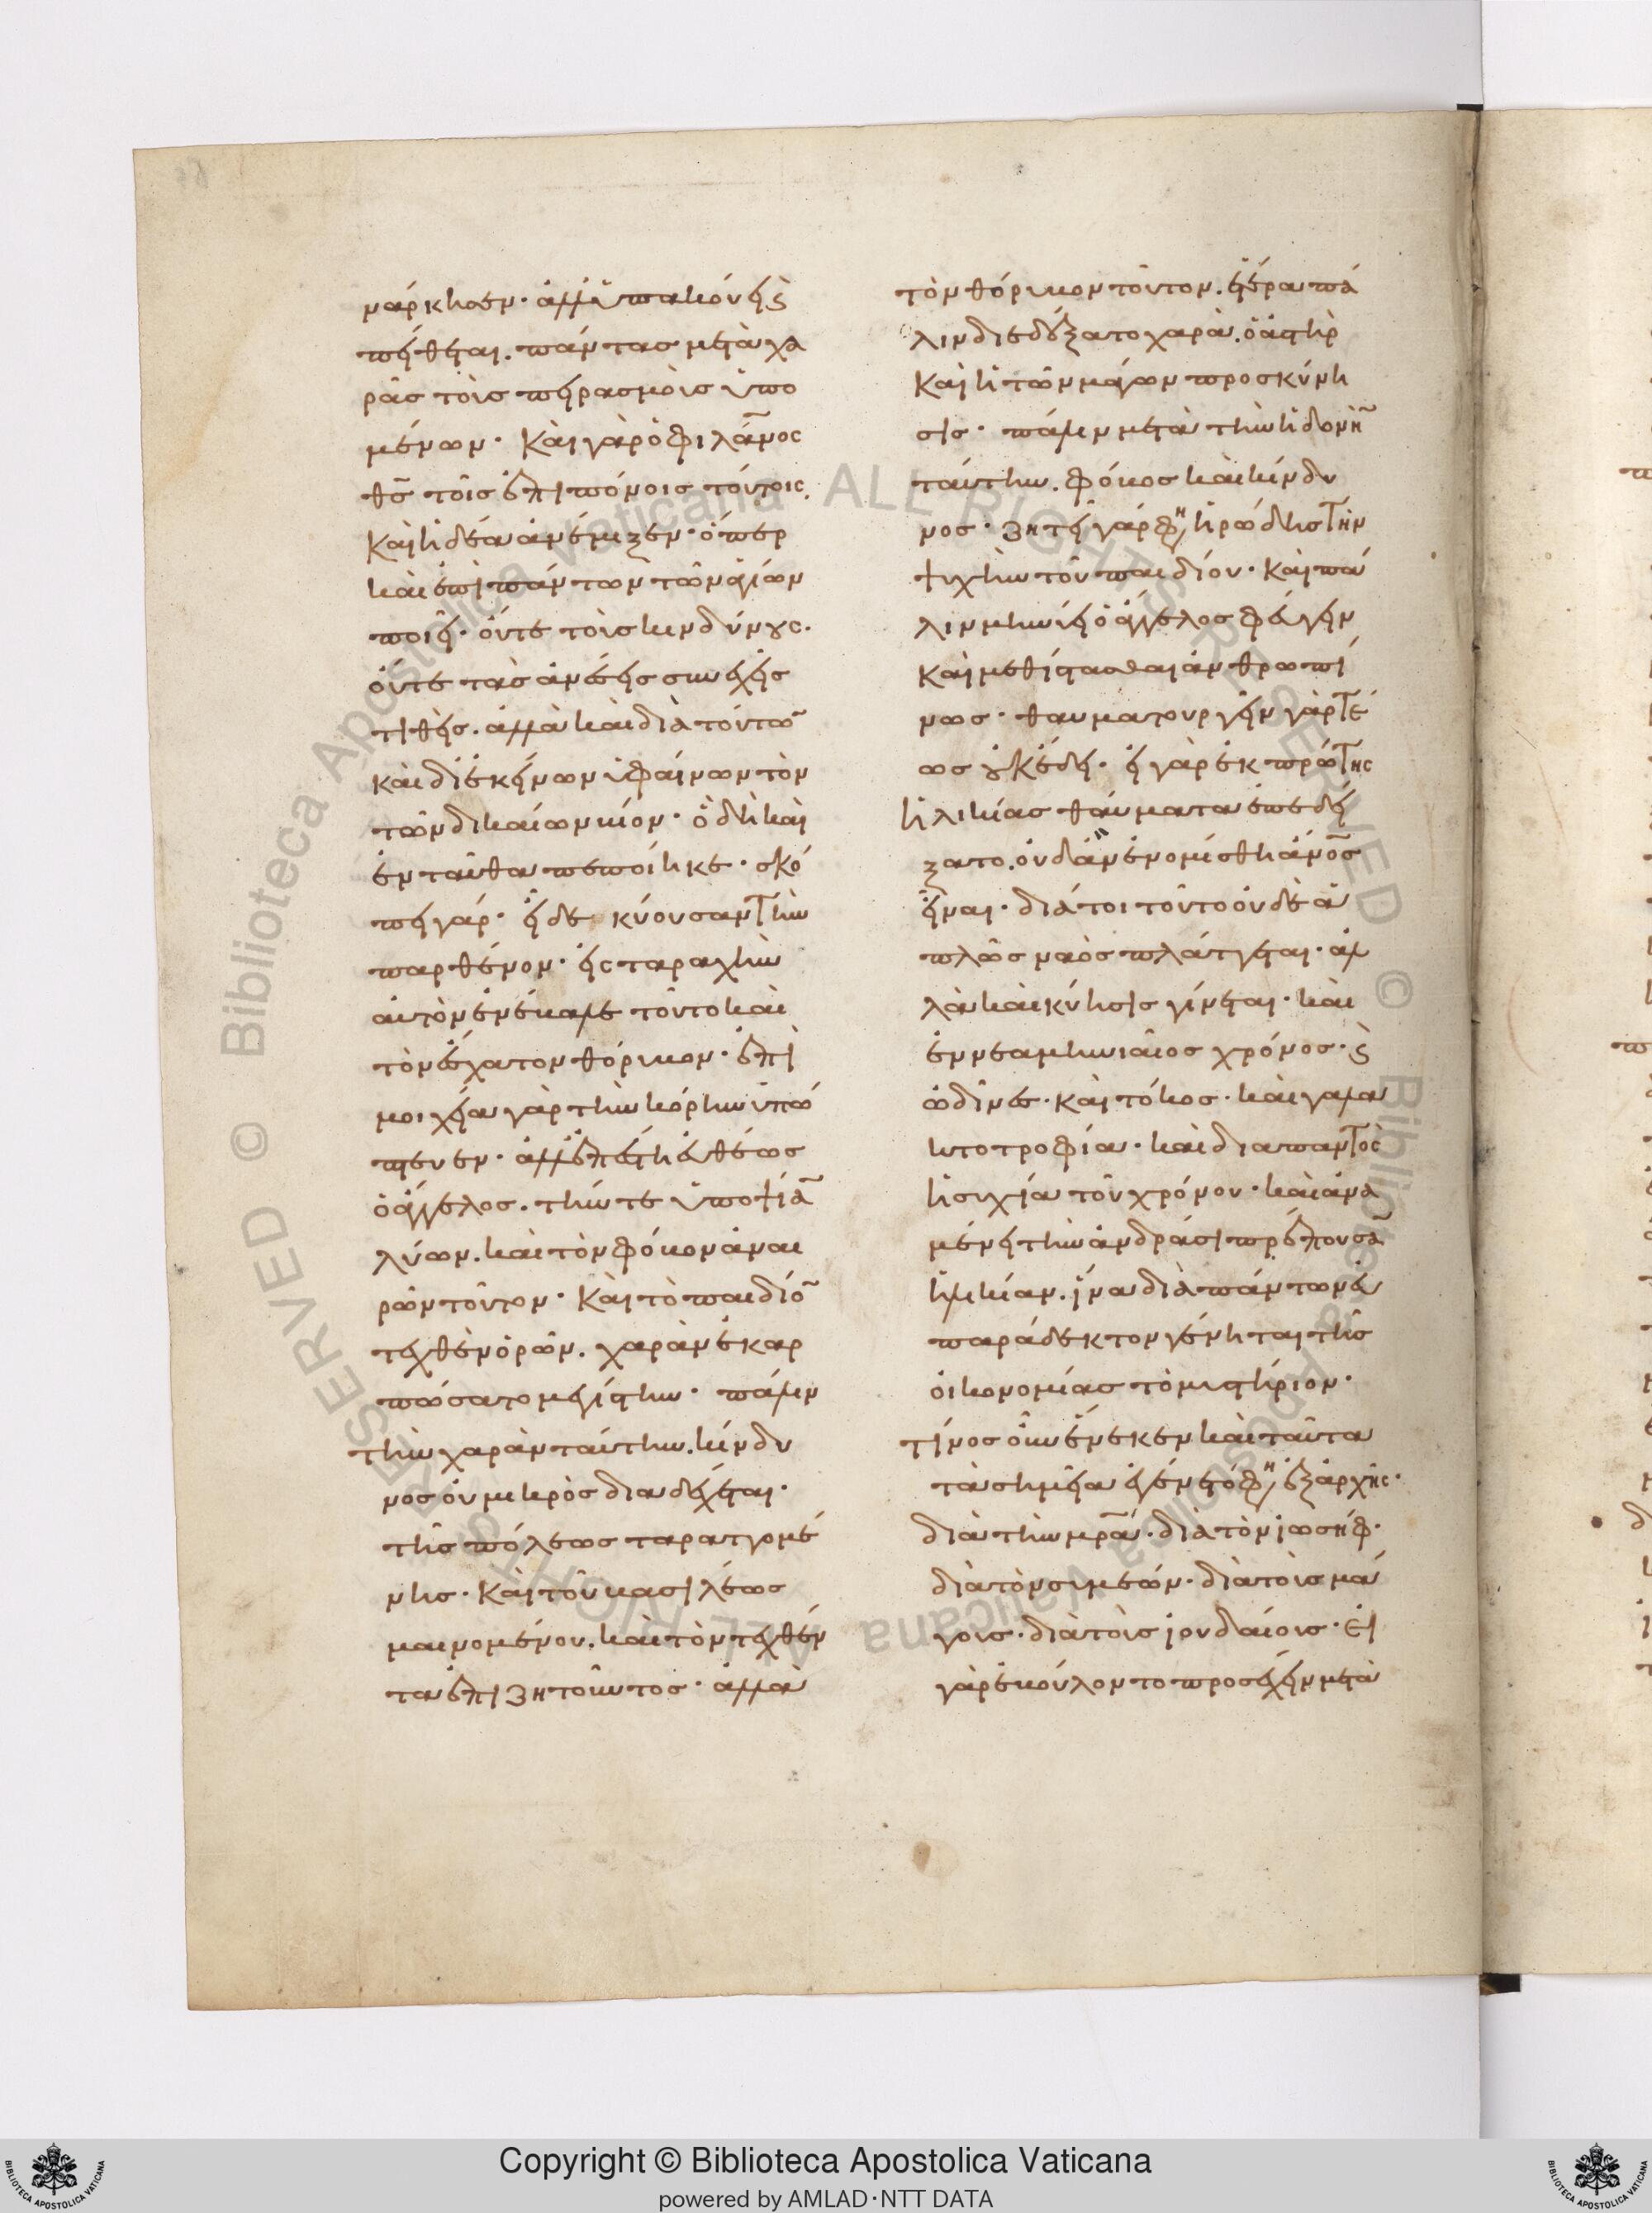 νάρκησεν· ἀλλ' ὑπακούει ϛ
πείθεται. πάντας μετὰ χα
ρᾶς τοὶς πειρασμοὶς ὑπο
μένων· Καὶ γὰρ ὁ φιλαν̅ο̅ς
θ̅ς̅ τοῖς ἐπιπόνοις τούτοις.
Καὶ ἡδέα ἀνέμιξεν· ὅπερ
καὶ ἐπὶ πάντων τῶν ἁγίων
ποιεῖ· οὔτε τοὶς κινδύνους.
οὔτε τὰς ἀνέσεις συνεχεῖς
τιθεὶς. ἀλλὰ καὶ διὰ τούτω̅
καὶ δι' ἐκείνων ὑφαίνων τὸν
τῶν δικαίων βίον· ὃ δὴ καὶ
ἐνταῦθα πεποίηκε· σκό
πει γάρ· εἶδε κύουσαν τὴν
παρθένον· εἰς ταραχὴν
αὐτὸν ἐνέβαλε τοῦτο καὶ
τὸν ἔσχατον θόρυβον· ἐπὶ
μοιχεία γὰρ τὴν κόρην ὑπώ
πτευεν· ἀλλ' ἐπέστη εὐθέως
ὁ ἄγγελος. τήν τε ὑποψία̅
λύων. καὶ τὸν φόβον ἀναι
ρῶν τοῦτον· Καὶ τὸ παιδίο̅
τεχθὲν ὁρῶν. χαρὰν ἐκαρ
πώσατο μεγίστην· πάλιν
τὴν χαρὰν ταύτην. κίνδυ
νος οὐ μικρὸς διαδέχεται·
τῆς πόλεως ταραττομέ
νης· Καὶ τοῦ βασιλέως
μαινομένου. καὶ τὸν τεχθέν
τα ἐπιζητοῦντος· ἀλλὰ
τὸν θόρυβον τοῦτον. ἑτέρα πά
λιν διεδέξατο χαρὰ. ὁ ἀστὴρ
Καὶ ἡ τῶν μάγων προσκύνη
σις· πάλιν μετὰ τὴν ἡδονὴ̅
ταύτην. φόβος καὶ κίνδυ
νος· ζητεῖ γάρ φη ἡρώδης τὴν
ψυχὴν τοῦ παιδίου· Καὶ πά
λιν μηνύει ὁ ἄγγελος φεύγειν
Καὶ μεθίστασθαι ἀνθρωπί
νως· θαυματουργεῖν γὰρ τέ
ως οὐκ ἔδει· εἰ γὰρ ἐκ πρώτης
ἡλικίας θαύματα ἐπεδεί
ξατο. οὐδ' ἂν ἐνομίσθη ἄν̅ο̅ς
εἶναι· διά τοι τοῦτο οὐδὲ ἁ
πλῶς ναὸς πλάττεται· ἀλ
λὰ καὶ κύησις γίνεται· καὶ
ἐννεαμηνιαῖος χρόνος· ϛ
ὠδῖνες· Καὶ τόκος· καὶ γαλα
κτοτροφία· καὶ διαπαντὸς
ἡσυχία τοῦ χρόνου· καὶ ἀνα
μένει τὴν ἀνδράσι πρέπουσα̅
ἡλικίαν. ἵνα διὰ πάντων εὐ
παράδεκτον γένηται τῆς
οἰκονομίας τὸ μυστήριον·
τίνος οὖν ἕνεκεν καὶ ταῦτα
τὰ σημεῖα ἐγένετό φη ἐξ ἀρχῆς·
διὰ τὴν μ̅ρ̅α̅· διὰ τὸν ἰωσήφ·
διὰ τὸν σιμεών· διὰ τοὶς μά
γοις· διὰ τοὶς ἰουδαίοις· εἰ
γὰρ ἐβούλοντο προσέχειν μετὰ